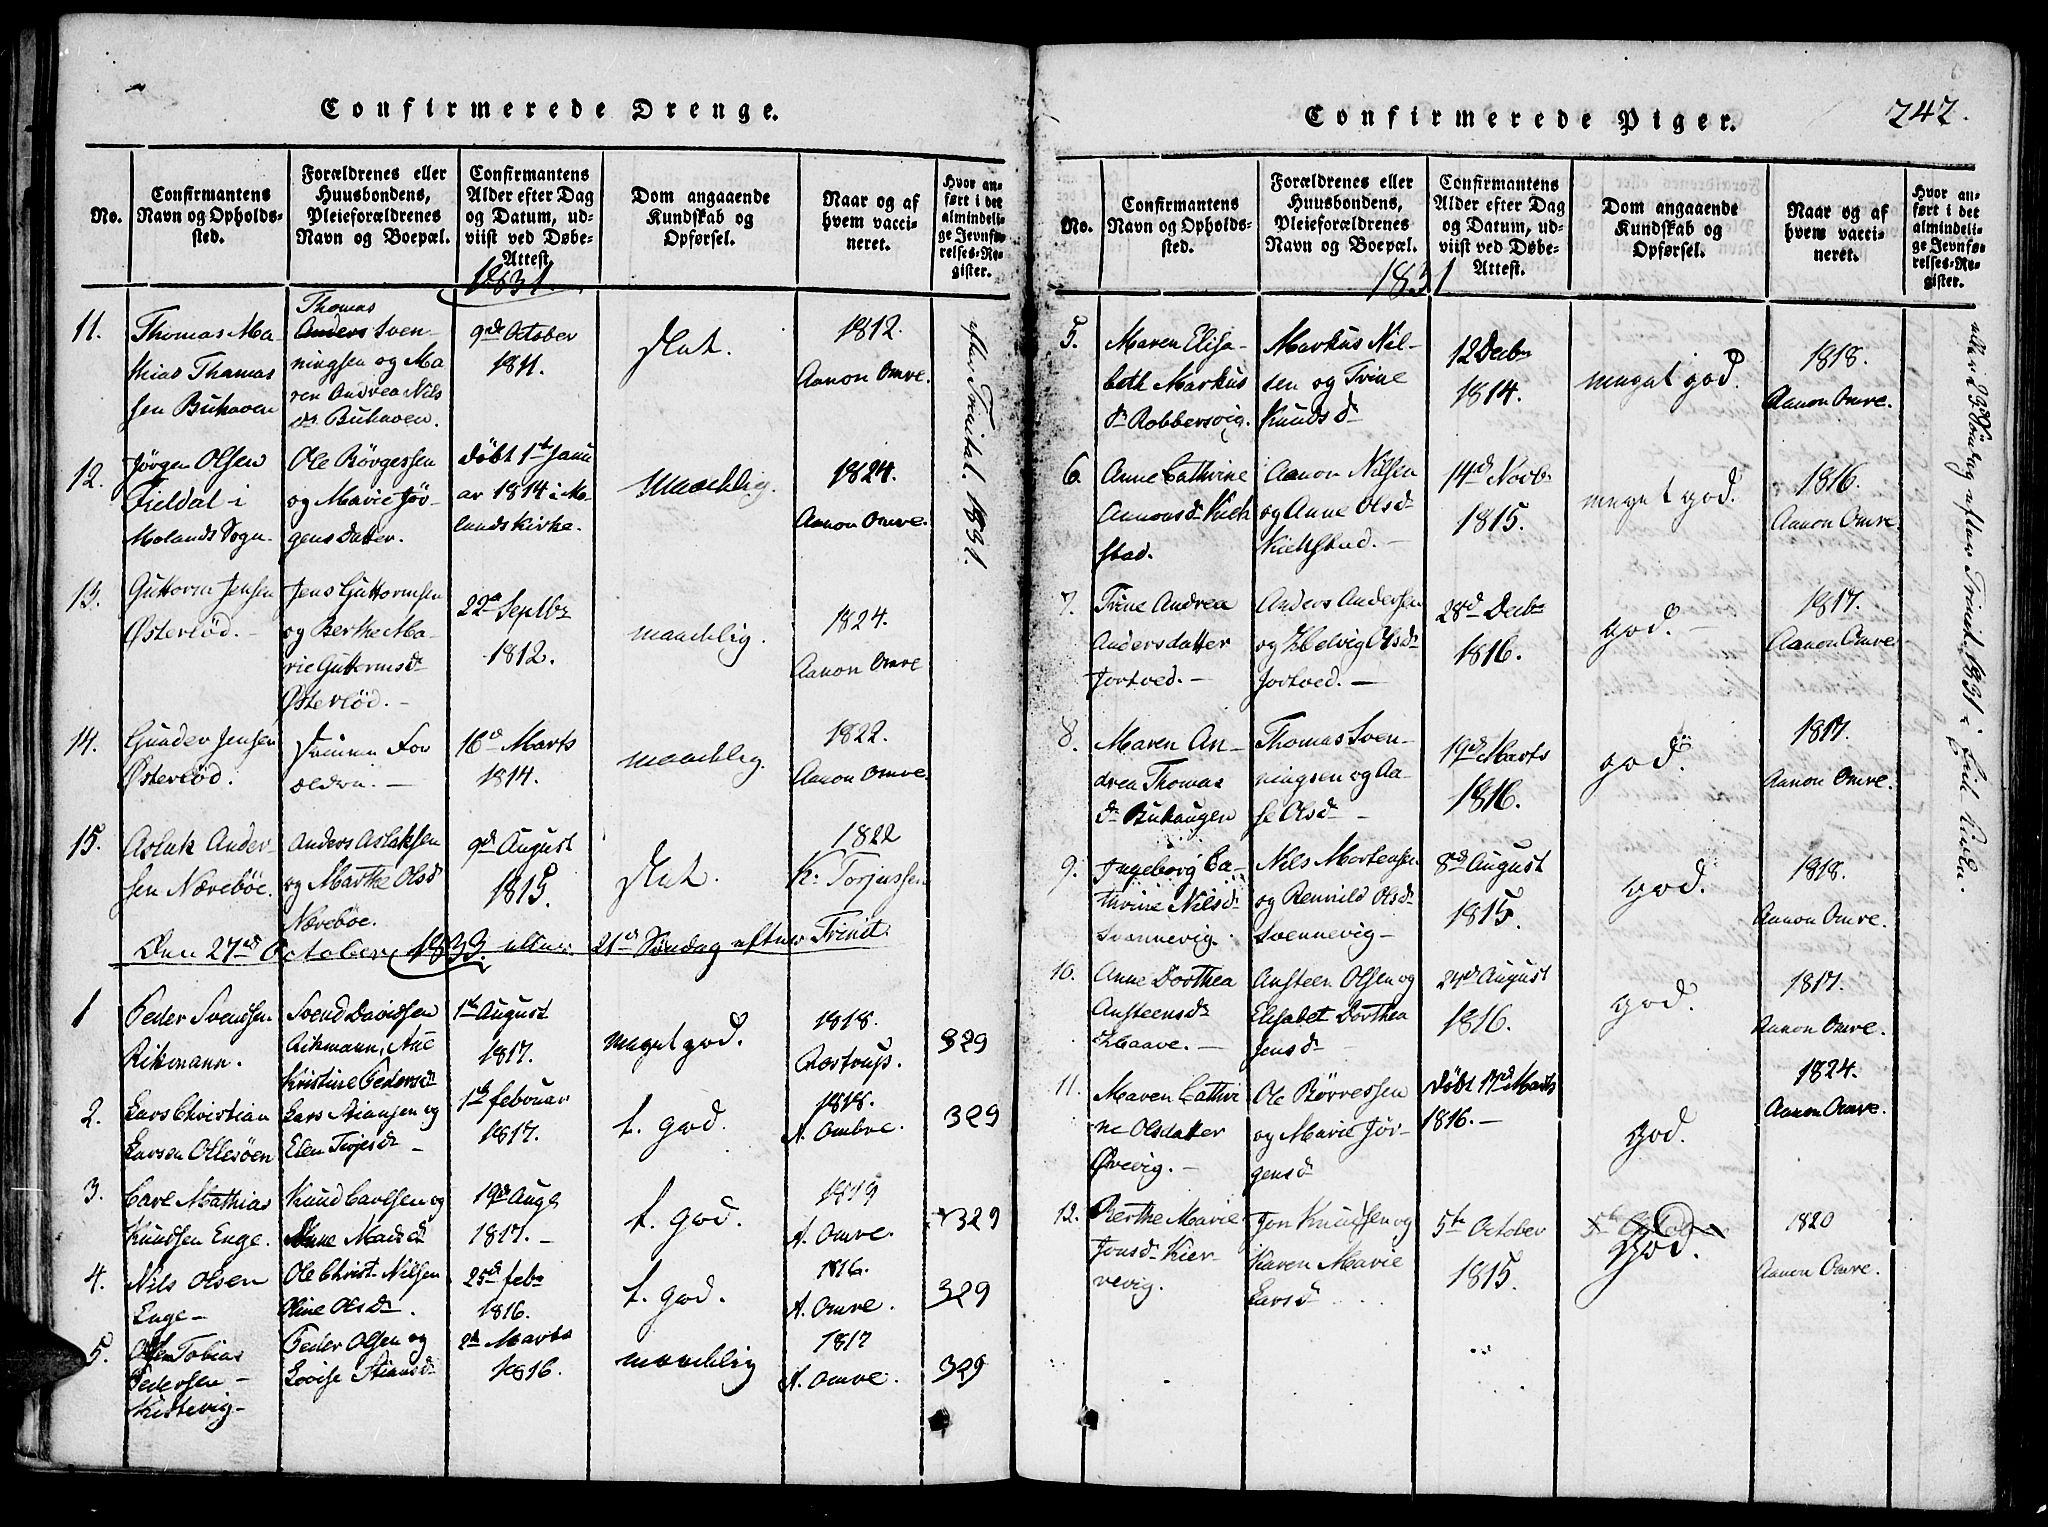 Confirmerede Drenge.
No.
Confirmantens
Navn og Opholds-
sted.
Forældrenes eller
Huusbondens,
Pleieforældrenes
Navn og Boepæl.
Confirmantens
Alder efter Dag
og Datum, ud-
viist ved Døbe-
Attest.
Dom angaaende
Kundskab og
Opførsel.
Naar og af
hvem vacci-
neret.
Hvor an-
ført i det
almindeli-
ge Jevnfø-
relses-Re-
gister.
1831.
11.
Thomas Ma-
thias Thomas
sen Buhaven
Thomas
Anders Sven-
ningsen og Ma
ren Andrea Nils
dr Buhaven.
9de October
1811.
slet.
1812.
Aanon Omre.
12.
Jørgen Olsen
Fieldal i
Molands Sogn.
Ole Børgessen
og Marie Jør-
gens Datter.
døbt 1te Janu
ar 1814 i Mo-
lands Kirke.
maadelig.
1824.
Aanon Omre.
13.
Guttorm Jensen
Østerlød. -
Jens Guttormsen
og Berthe Ma-
rie Guttormsdr
Østerlød. -
22d Septbr
1812.
maadelig.
1824.
Aanon Omre
14.
Gunder Jensen
Østerlød.
Samme For
ældre. -
16d Marts
1814.
maadelig.
1822.
Aanon Omre.
15.
Aslak Ander-
sen Nærebøe.
Anders Aslaksen
og Marthe Olsdr
Nærebøe.
9de August
1815.
slet.
1822
K. Torjussen
efter Trinitat. 1831.
Den 27de October 1833. 21d Søndag efter Trinit.
1
Peder Svendsen
Rikmann.
Svend Davidsen
Rikmann, Ane
Kristine Pedersdr
1te August
1817.
meget god.
1818.
Aastrup.
329
2.
Lars Christian
Larsen Ollesøen
Lars Stiansen og
Elen Terjesdr -
1te februar
1817.
t. god.
1818.
A. Ombre.
329
3.
Carl Mathias
Knudsen Enge.
Knud Carlsen og
Anne Madsdr
19de Augs
1817. -
t. god.
1819
A. Omre.
329
4.
Nils Olsen
Enge -
Ole Christ. Nilsen
Oline Olsdr.
25d febr
1816.
t. god.
1816.
A. Omre.
329
5.
Tobias
Pedersen -
Kistevig -
Peder Olsen og
Lovise Stiansdr
2de Marts
1816.
maadelig
1817
A. Omre.
329
Confirmerede Piger.
242.
No.
Confirmantens
Navn og Opholds-
sted.
Forældrenes eller
Huusbondens,
Pleieforældrenes
Navn og Boepæl.
Confirmantens
Alder efter Dag
og Datum, ud-
viist ved Døbe-
Attest.
Dom angaaende
Kundskab og
Opførsel.
Naar og af
hvem vacci-
neret.
Hvor an-
ført i det
almindeli-
ge Jevnfø-
relses-Re-
gister.
1831
5.
Maren Elisa-
beth Markus
dr Robbersvig.
Markus Nil-
sen og Trine
Knudsdr
12 Decbr
1814.
meget god.
1818.
Aanon Omre.
6.
Anne Cathrine
Aanonsdr Kick
stad.
Aanon Nilsen
og Anne Olsdr
Kickstad. -
14d Novbr
1815.
meget god.
1816.
Aanon Omre.
7.
Trine Andrea
Andersdatter
Jortved. -
Anders Andersen
og Helvig Olsdr
Jortved. -
28d Decbr
1816.
god. -
1817.
Aanon Omre.
8.
Maren An-
drea Thomas
dr Buhaugen
Thomas Sven-
ningsen og Aa-
se Olsdr -
19de Marts
1816.
god.
1817.
Aanon Omre.
9.
Ingeborg Ca-
thrine Nilsdr
Svennevig.
Nils Mortensen
og Rennild Olsdr
Svennevig -
8de August
1815.
god.
1818.
Aanon Omre.
10.
Anne Dorthea
Ansteensdr
Haave. -
Ansteen Olsen og
Elisabet Dorthea
Jensdr -
24d August
1816.
god.
1817.
Aanon Omre.
11.
Maren Cathri
ne Olsdatter
Ørevig. -
Ole Børresen
og Marie Jør-
gensdr
døbt 17d Marts
1816. -
god.
1824.
Aanon Omre.
12.
Berthe Marie
Jonsdr Kier-
vevig.
Jon Knudsen og
Karen Marie
Larsdr
5te October
1815.
5te October
god.
1820
Aanon Omre.
Søndag efter Trinit. 1831 i